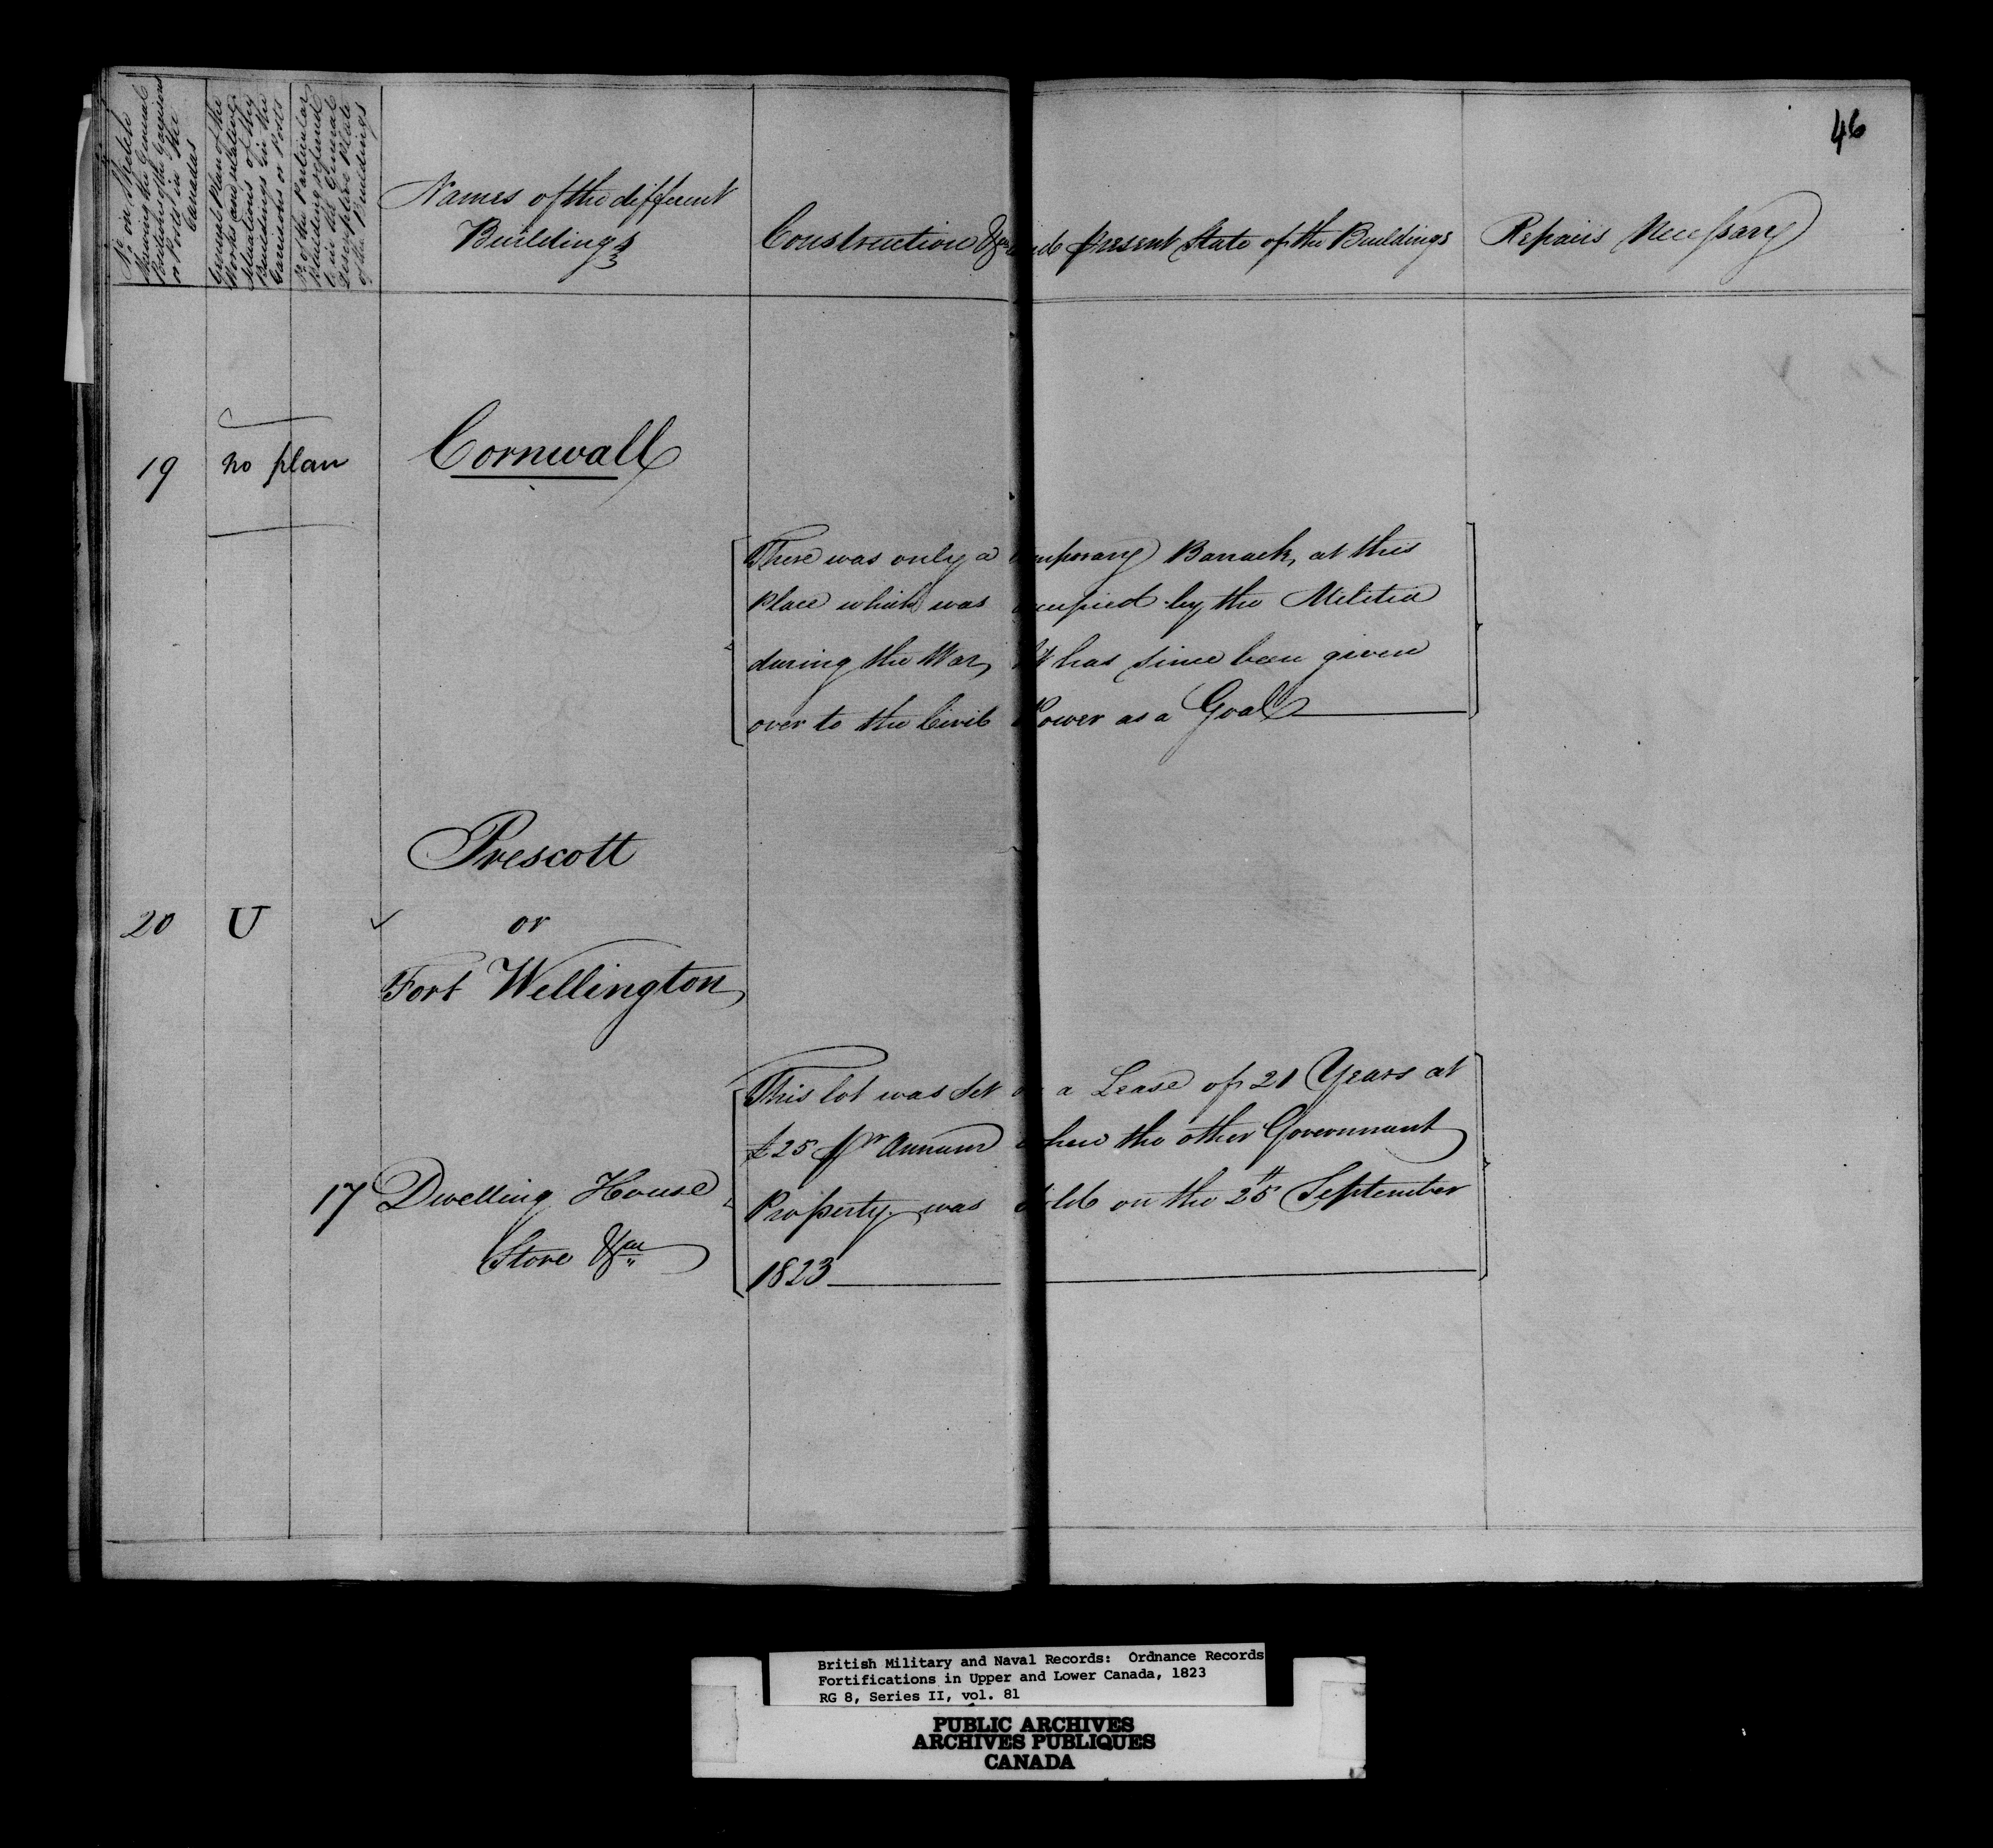 46
No. on Sketch
Shewing the General
Positions of the Garrisons
or Posts in the
Canadas
General Plan of the
Works and relative
situations of the
Buildings in the
Garrisons or Posts
No. of the Particular
Building referred
to in the General
descriptive State
of the Buildings
Names of the different
Buildings
Construction &ca and present State of the Buildings
Repairs Necessary
19 no plan Cornwall
There was only a temporary Barrack, at this
Place which was occupied by the Militia
during the War, It has since been given
over to the Civil Power as a Goal
Prescott
20 U or
Fort Wellington
This lot was Set on a Lease of 21 Years at
£25 pr Annum when the other Government
17 Dwelling House Property was Sold on the 25th September
Store &ca 1823
British Military and Naval Records: Ordnance Records
Fortifications in Upper and Lower Canada, 1823
RG 8, Series II, vol. 81
PUBLIC ARCHIVES
ARCHIVES PUBLIQUES
CANADA